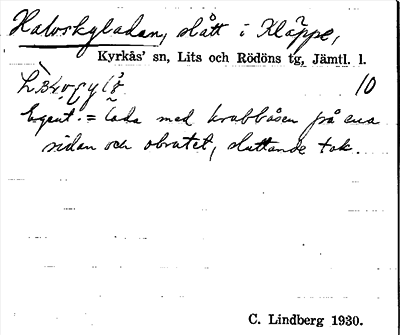 Halvskyladan, slått i Kläppe,
Kyrkås' sn, Lits och Rödöns tg, Jämtl. l.
10
Egent. = lada med krubbåsen på ena
sidan och obrutet, sluttande tak.
C. Lindberg 1930.